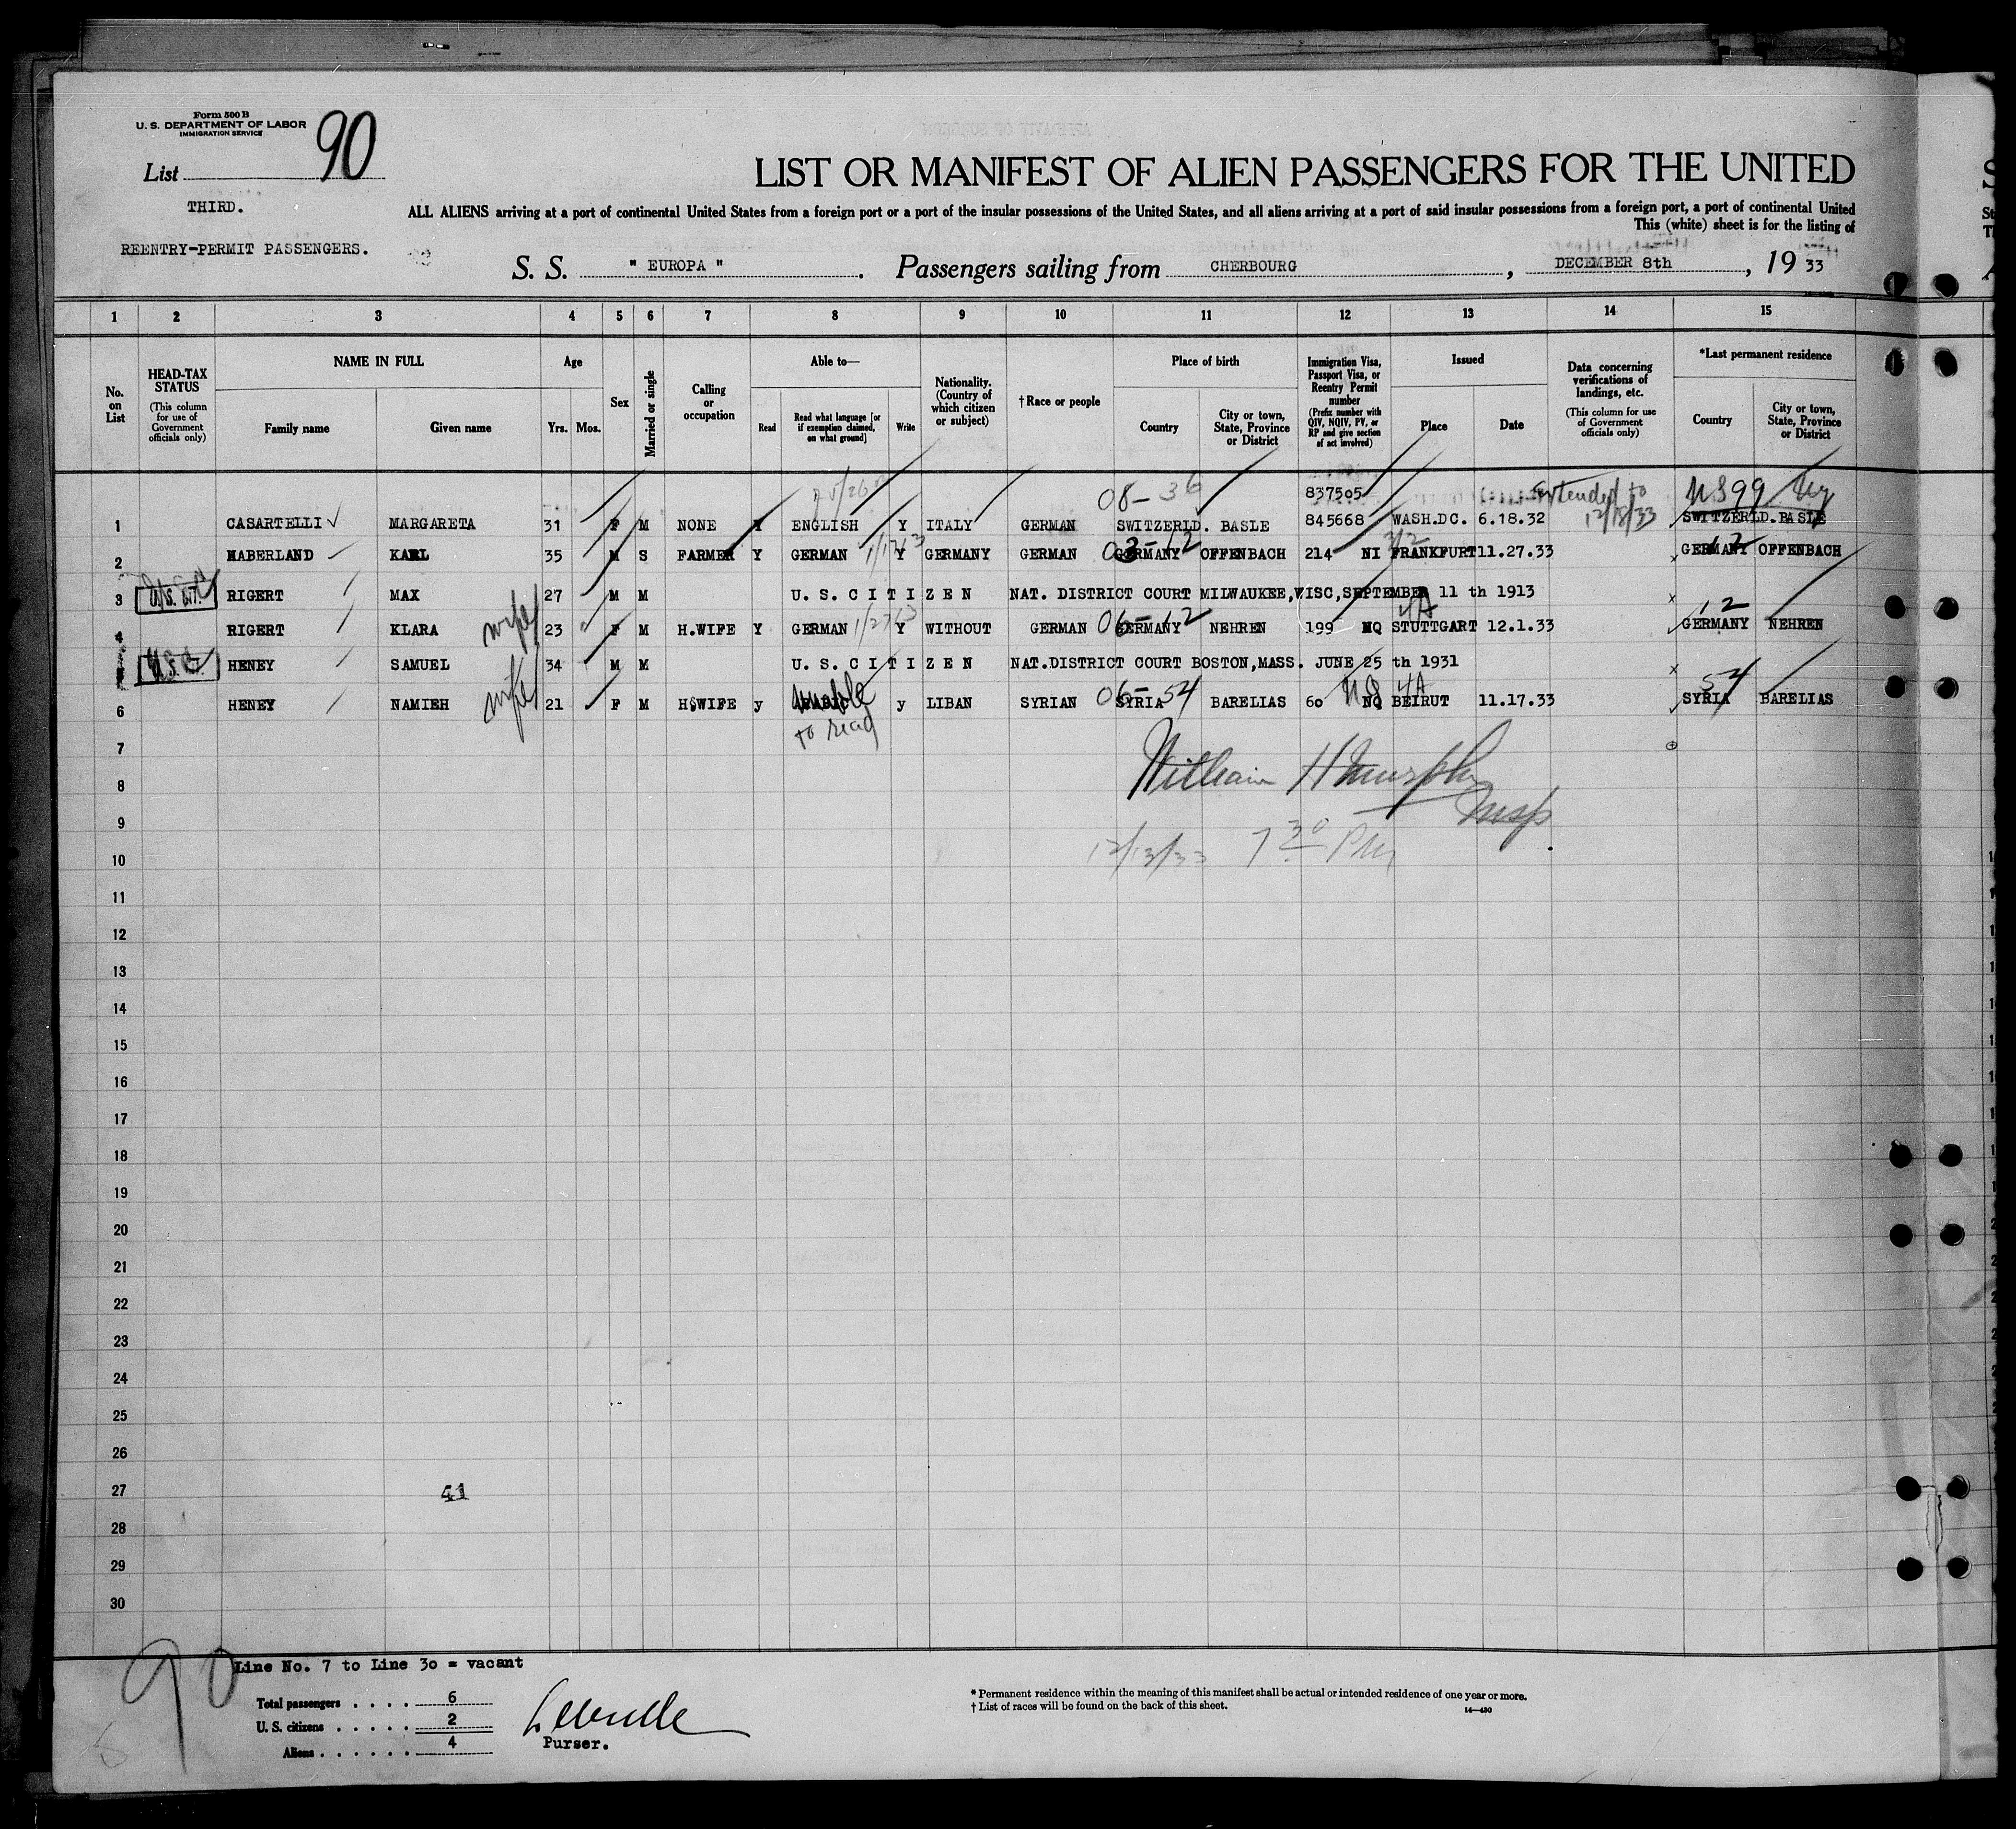 Form 500 B
U. S. DEPARTMENT OF LABOR
IMMIGRATION SERVICE
List 90
THIRD.
REENTRY-PERMIT PASSENGERS.
LIST OR MANIFEST OF ALIEN PASSENGERS FOR THE UNITED
ALL ALIENS arriving at a port of continental United States from a foreign port or a port of the insular possessions of the United States, and all aliens arriving at a port of said insular possessions from a foreign port, a port of continental United
This (white) sheet is for the listing of
S. S. " EUROPA " . Passengers sailing from CHERBOURG , DECEMBER 8th , 19 33
1 2 3 4 5 6 7 8 9 10 11 12 13 14 15
No. on List
HEAD-TAX STATUS
(This column for use of Government officials only)
NAME IN FULL
Family name
Given name
Age
Yrs. Mos.
Sex
Married or single
Calling or occupation
Able to—
Read
Read what language [or if exemption claimed, on what ground]
Write
Nationality. (Country of which citizen or subject)
†Race or people
Place of birth
Country
City or town, State, Province or District
Immigration Visa, Passport Visa, or Reentry Permit number
(Prefix number with QIV, NQIV, PV, or RP and give section of act involved)
Issued
Place
Date
Data concerning verifications of landings, etc.
(This column for use of Government officials only)
*Last permanent residence
Country
City or town, State, Province or District
08- 36 837505 Extended to 12/18/33 NS 99 Ny
1 CASARTELLI MARGARETA 31 F M NONE Y ENGLISH Y ITALY GERMAN SWITZERLD. BASLE 845668 WASH.DC. 6.18.32 SWITZERLD. BASLE
2 HABERLAND KARL 35 M S FARMER Y GERMAN Y GERMANY GERMAN 03-12 GERMANY OFFENBACH 214 NI FRANKFURT 11.27.33 12 GERMANY OFFENBACH
3 RIGERT MAX 27 M M U. S. C I T I Z E N NAT. DISTRICT COURT MILWAUKEE,WISC,SEPTEMBER 11 th 1913
4 RIGERT KLARA wife 23 F M H.WIFE Y GERMAN Y WITHOUT GERMAN 06-12 GERMANY NEHREN 199 NQ 4A STUTTGART 12.1.33 12 GERMANY NEHREN
U.S.C. HENEY SAMUEL 34 M M U. S. C I T I Z E N NAT.DISTRICT COURT BOSTON,MASS. JUNE 25 th 1931
6 HENEY NAMIEH wife 21 F M HSWIFE y unable to read y LIBAN SYRIAN 06-54 SYRIA BARELIAS 60 NS NQ 4A BEIRUT 11.17.33 54 SYRIA BARELIAS
7
William H Murphy
8
Insp
9
12/13/33 7 30 PM
10
11
12
13
14
15
16
17
18
19
20
21
22
23
24
25
26
27 41
28
29
30
90
Line No. 7 to Line 30 = vacant
Total passengers . . . . 6
U. S. citizens . . . . . 2
Aliens . . . . . . 4
Purser.
* Permanent residence within the meaning of this manifest shall be actual or intended residence of one year or more.
† List of races will be found on the back of this sheet.
14—430